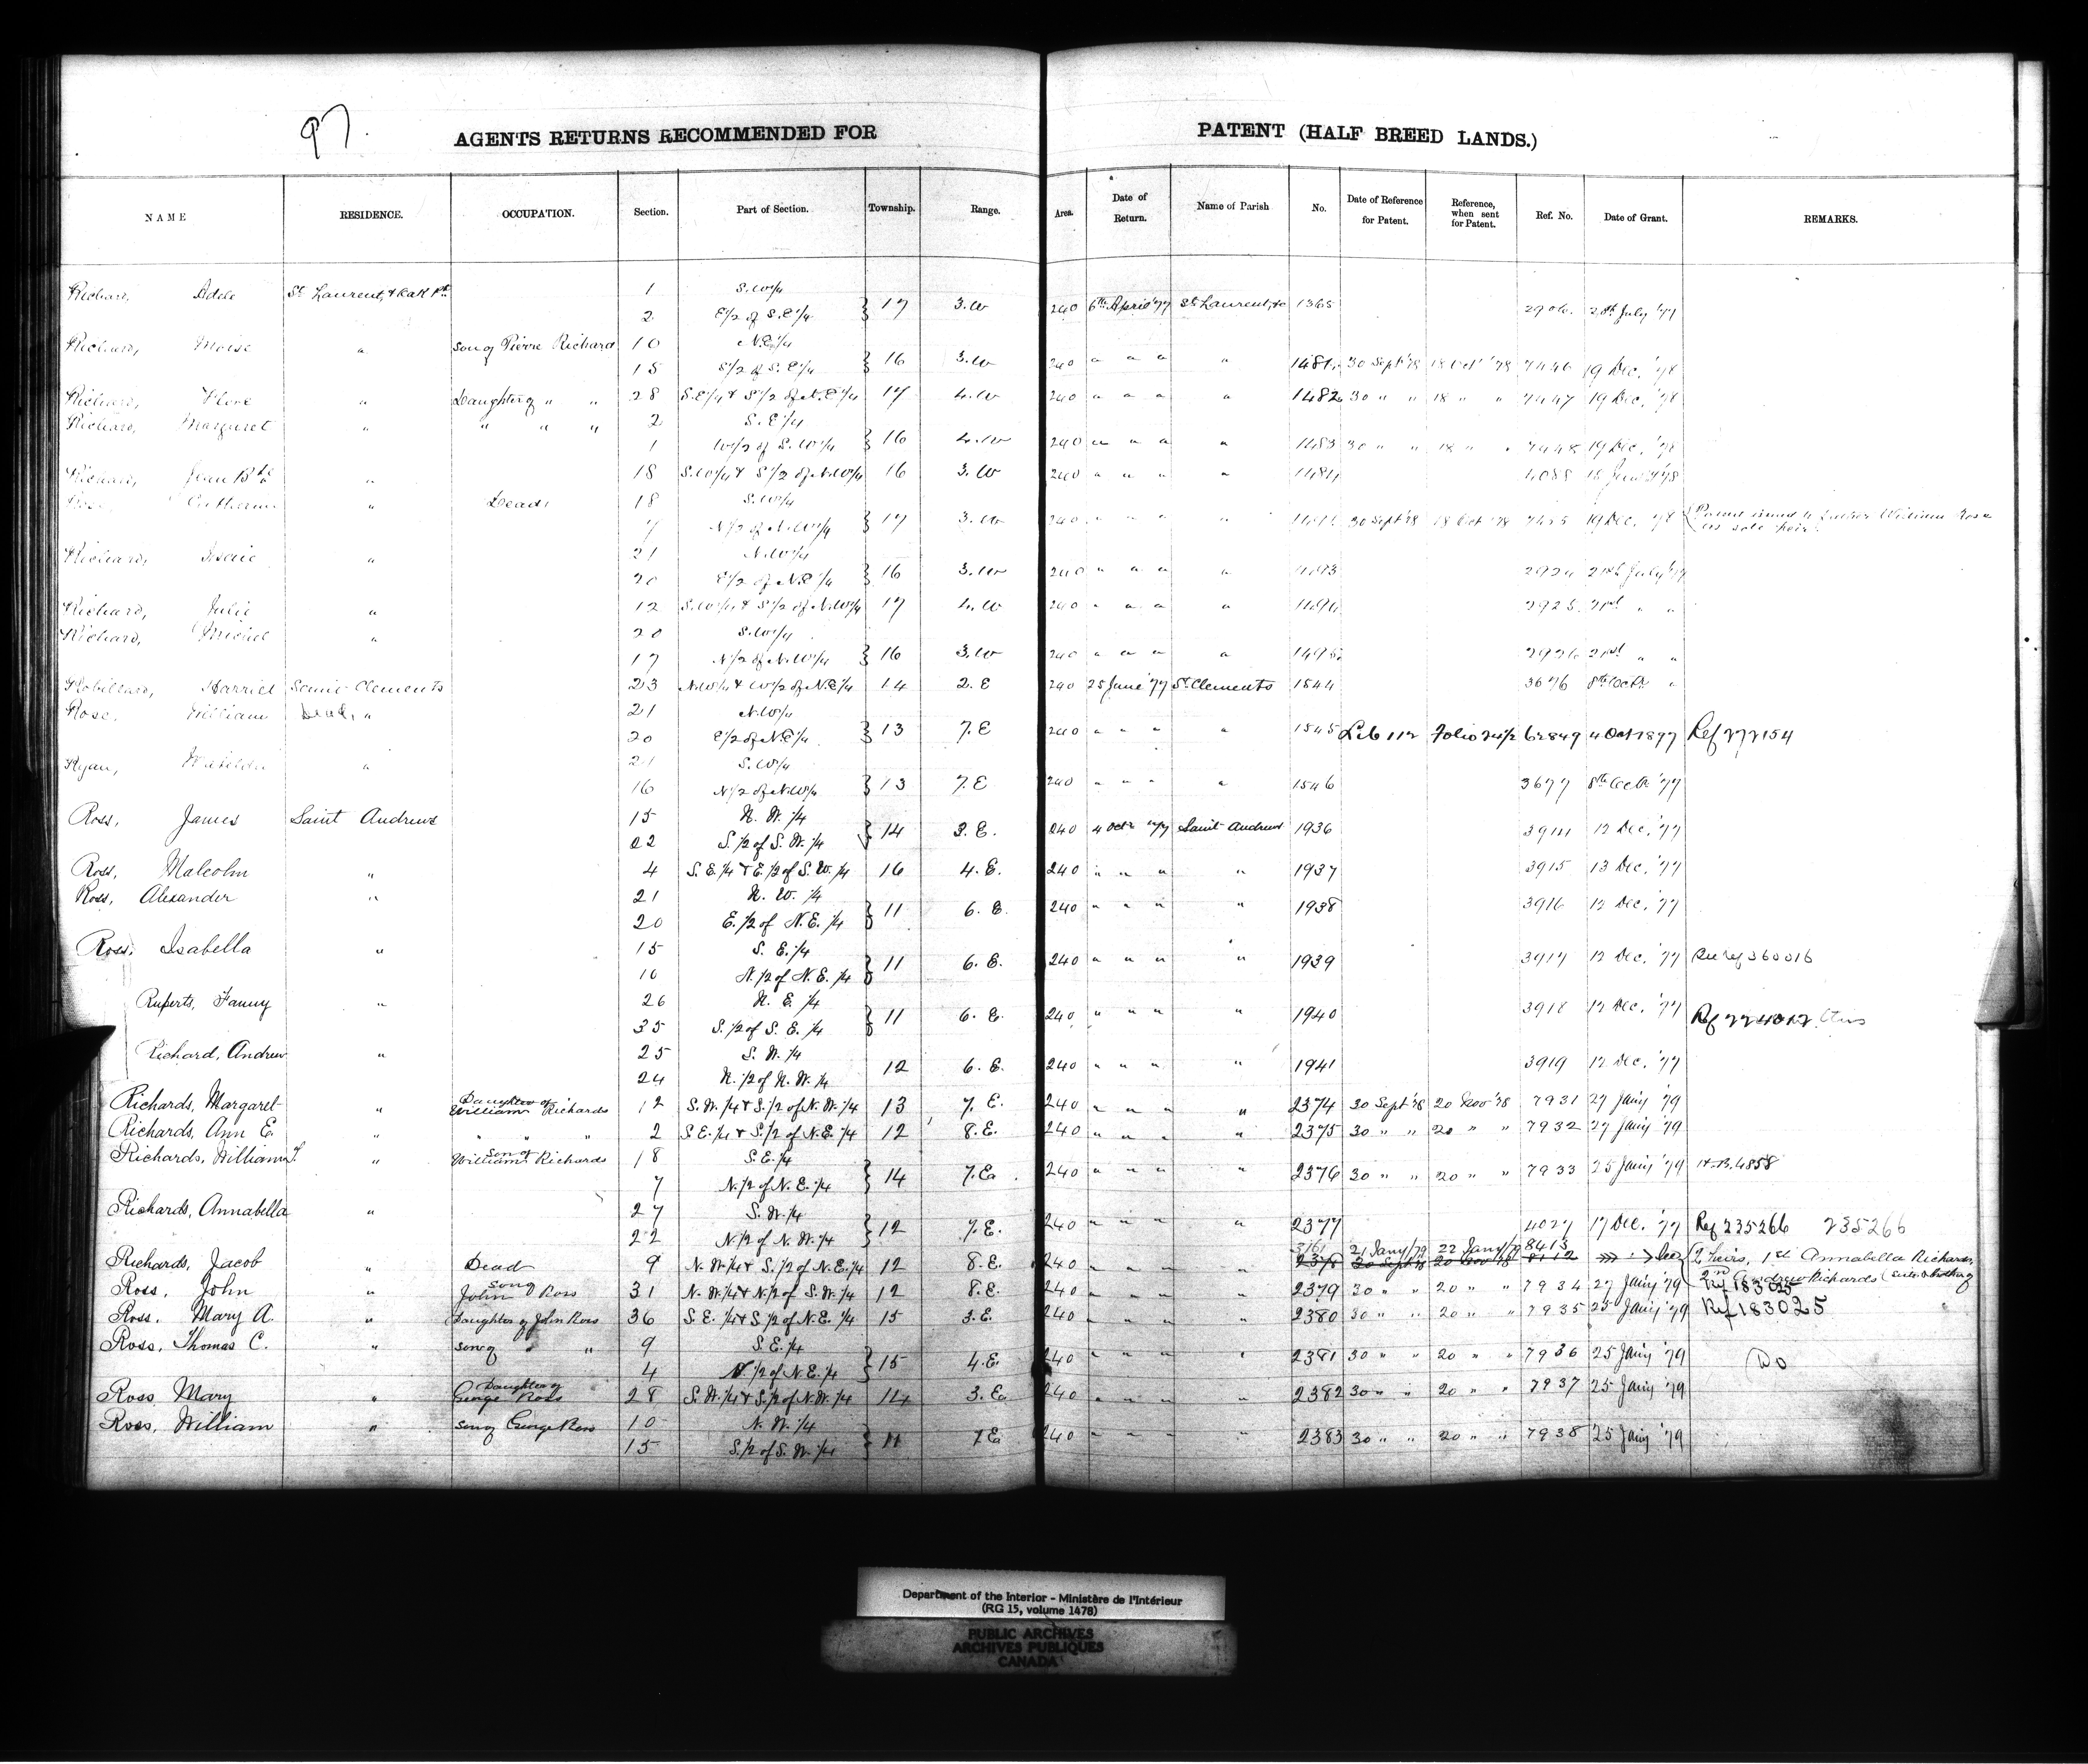 97.
AGENTS RETURNS RECOMMENDED FOR PATENT (HALF BREED LANDS.)
NAME RESIDENCE. OCCUPATION. Section. Part of Section. Township. Range. Area. Date of Return. Name of Parish No. Date of Reference for Patent. Reference, when sent for Patent. Ref. No. Date of Grant. REMARKS.
Richard, Adele St. Laurent, & 1 S.W¼
2 E½ of S.E¼ } 17 3.W 240 6th April '77 St. Laurent, &c 1365 2906. 28th July '77
Richard, Moise " son of Pierre Richard 10 N.E¼
15 S½ of S.E¼ } 16 3.W 240 " " " " 1481 30 Sept '78 18 Oct '78 7446 19 Dec. '78
Richard, Flore " Daughter of " " 28 S.E¼ & S½ of N.E¼ 17 4.W 240 " " " " 1482 30 " " 18 " " 7447 19 Dec. '78
Richard, Margaret " " " " 2 S.E¼
1 W½ of S.W¼ } 16 4.W 240 " " " " 1483 30 " " 18 " " 7448 19 Dec. '78
Richard, Jean Bte " 18 S.W¼ & S½ of N.W¼ 16 3.W 240 " " " " 1484 4088 18
" Dead 18 S.W¼
7 N½ of N.W¼ } 17 3.W 240 " " " " 30 Sept '78 18 Oct '78 19 Dec. '78 (Patent issued to father William Ross
as sole heir.
Richard, " 21 N.W¼
20 E½ of N.E¼ } 16 3.W 240 " " " " 2924 21st July '77
Richard, Julie " 12 S.W¼ & S½ of N.W¼ 17 4.W 240 " " " " 1494 2925 21st " "
Richard, Michel " 20 S.W¼
17 N½ of N.W¼ } 16 3.W 240 " " " " 1495 2926 21st " "
Robillard, Harriet Saint Clements 23 N.W¼ & W½ of N.E¼ 14 2.E 240 25 June '77 St. Clements 1544 3676 8th Octr "
Rose, William Dead, " 21 N.W¼
20 E½ of N.E¼ } 13 7.E 240 " " " " 1545 Lib 112 Folio 24½ 62849 4 Oct 1877 Ref 272154
Ryan, Matilda " 21 S.W¼
16 N½ of N.W¼ } 13 7.E 240 " " " " 1546 3677 8th Octr '77
Ross, James Saint Andrews 15 N.W.¼
22 S.½ of S.W.¼ } 14 3.E. 240 4 Octr '77 Saint Andrews 1936 3914 12 Dec. '77
Ross, Malcolm " 4 S.E.¼ & E.½ of S.W.¼ 16 4.E. 240 " " " " 1937 3915 13 Dec. '77
Ross, Alexander " 21 N.W.¼
20 E.½ of N.E.¼ } 11 6.E. 240 " " " " 1938 3916 12 Dec. '77
Ross, Isabella " 15 S.E.¼
10 N.½ of N.E.¼ } 11 6.E. 240 " " " " 1939 3917 12 Dec. '77 See ref 360016
Ruperts, Fanny " 26 N.E.¼
35 S.½ of S.E.¼ } 11 6.E. 240 " " " " 1940 3918 12 Dec. '77 Ref 224012
Richard, Andrew " 25 S.W.¼
24 N.½ of N.W.¼ 12 6.E. 240 " " " " 1941 3919 12 Dec. '77
Richards, Margaret " Daughter of William Richards 12 S.W.¼ & S.½ of N.W.¼ 13 7.E. 240 " " " " 2374 30 Sept '78 20 Nov '78 7931 27 Jany '79
Richards, Ann E. " " " " 2 S.E.¼ & S.½ of N.E.¼ 12 8.E. 240 " " " " 2375 30 " " 20 " " 7932 27 Jany '79
Richards, William T. " Son of William Richards 18 S.E.¼
7 N.½ of N.E.¼ } 14 7.Ea. 240 " " " " 2376 30 " " 20 " " 7933 25 Jany '79 H.B. 4858
Richards, Annabella " 27 S.W.¼
22 N.½ of N.W.¼ } 12 7.E. 240 " " " " 2377 4027 17 Dec. '77 Ref 235266 235266
3161 21 Jany/79 22 Jany/79 8413
Richards, Jacob " Dead 9 N.W.¼ & S.½ of N.E.¼ 12 8.E. 240 " " " " 2378 30 Sept '78 20 Nov '78 8112 (2 heirs, 1st Annabella Richards,
2nd Andrew Richards (sister & brother)
Ross, John " Son of John Ross 31 N.W.¼ & N.½ of S.W.¼ 12 8.E. 240 " " " " 2379 30 " " 20 " " 7934 27 Jany '79 Ref 183025
Ross, Mary A. " Daughter of John Ross 36 S.E.¼ & S.½ of N.E.¼ 15 3.E. 240 " " " " 2380 30 " " 20 " " 7935 25 Jany '79 Ref 183025
Ross, Thomas C. " son of " " 9 S.E.¼
4 N.½ of N.E.¼ } 15 4.E. 240 " " " " 2381 30 " " 20 " " 7936 25 Jany '79 Do
Ross, Mary " Daughter of George Ross 28 S.W.¼ & S.½ of N.W.¼ 14 3.Ea 240 " " " " 2382 30 " " 20 " " 7937 25 Jany '79
Ross, William " son of George Ross 10 N.W.¼
15 S.½ of S.W.¼ } 11 7 Ea 240 " " " " 2383 30 " " 20 " " 7938 25 Jany '79
Department of the Interior - Ministère de l'Intérieur
(RG 15, volume 1478)
PUBLIC ARCHIVES
ARCHIVES PUBLIQUES
CANADA